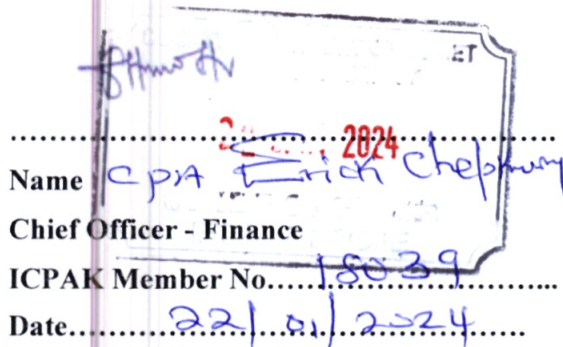 ET
2024
Name CPA Erick
Chief Officer - Finance
ICPAK Member No. 18039
Date 22/01/2024